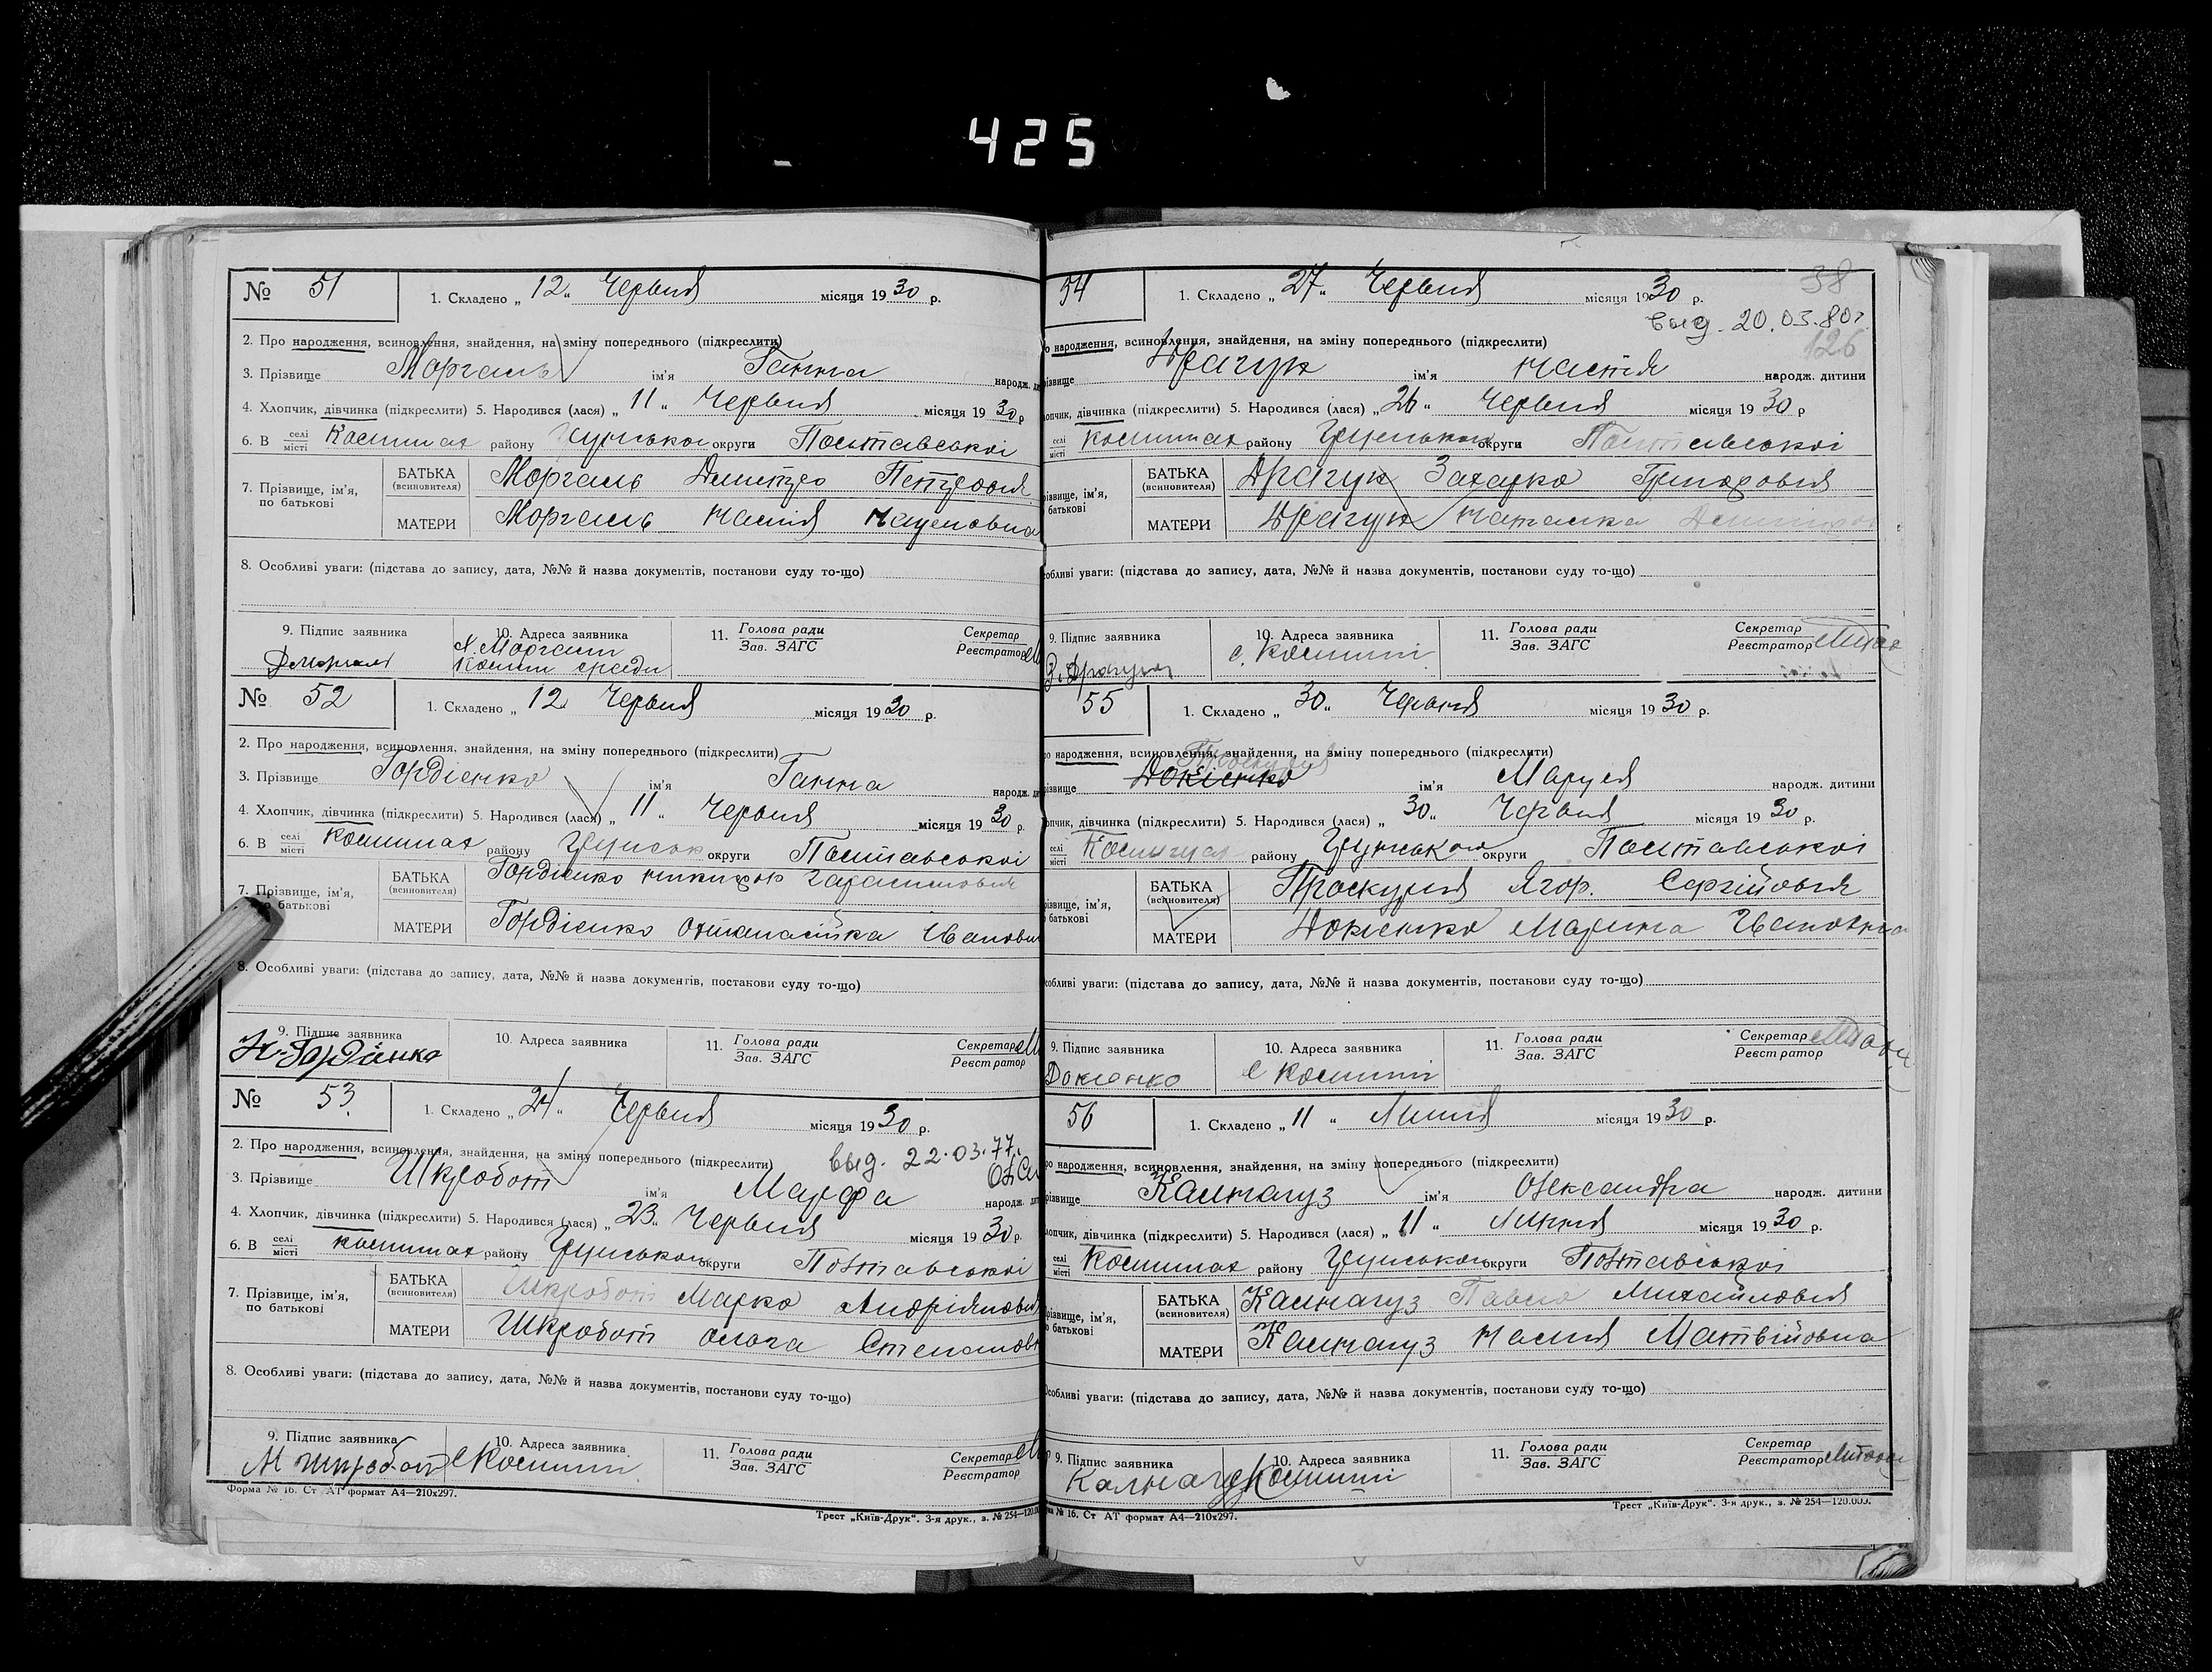 425
№ 51
1. Складено „ 12 " Червня місяця 1930 р.
2. Про народження, всиновлення, знайдення, на зміну попереднього (підкреслити)
3. Прізвище Моргаль ім'я Ганна народж.
4. Хлопчик, дівчинка (підкреслити) 5. Народився (лася) „ 11 " Червня місяця 1930 р
6. В селі місті району округи Полтавської
7. Прізвище, ім'я, по батькові
БАТЬКА (всиновителя) Моргаль Дмитро Петрович
МАТЕРИ Моргаль
8. Особливі уваги: (підстава до запису, дата, №№ й назва документів, постанови суду то-що)
9. Підпис заявника
10. Адреса заявника
11. Голова ради Зав. ЗАГС
Секретар Реєстратор
№ 52
1. Складено „ 12 Червня місяця 1930 р.
2. Про народження, всиновлення, знайдення, на зміну попереднього (підкреслити)
3. Прізвище Гордієнко ім'я Ганна народж.
4. Хлопчик, дівчинка (підкреслити) 5. Народився (лася) „ 11 " Червня місяця 1930 р.
6. В селі місті району округи Полтавської
7. Прізвище, ім'я, батькові
БАТЬКА (всиновителя) Гордієнко
МАТЕРИ Гордієнко
8. Особливі уваги: (підстава до запису, дата, №№ й назва документів, постанови суду то-що)
9. Підпис заявника
10. Адреса заявника
11. Голова ради Зав. ЗАГС
Секретар Реєстратор
№ 53
1. Складено „ 24 " Червня місяця 1930 р.
2. Про народження, всиновлення, знайдення, на зміну попереднього (підкреслити) выд. 22.03.77
3. Прізвище Шкробот ім'я Марфа народж.
4. Хлопчик, дівчинка (підкреслити) 5. Народився (лася) „ 23 " Червня місяця 1930 р.
6. В селі місті району округи Полтавської
7. Прізвище, ім'я, по батькові
БАТЬКА (всиновителя) Шкробот Марко
МАТЕРИ Шкробот Ольга
8. Особливі уваги: (підстава до запису, дата, №№ й назва документів, постанови суду то-що)
9. Підпис заявника М Шкробот
10. Адреса заявника
11. Голова ради Зав. ЗАГС
Секретар Реєстратор
Форма № 16. Ст АТ формат А4—210х297.
Трест „Київ-Друк". 3-я друк., з. № 254—120.0
54
1. Складено „ 27 " Червня місяця 1930 р.
38
выд. 20.03.80г
126
народження, всиновлення, знайдення, на зміну попереднього (підкреслити)
Драгун ім'я Настя народж. дитини
дівчинка (підкреслити) 5. Народився (лася) „ 26 " Червня місяця 1930 р
селі місті району округи Полтавської
ім'я, батькові
БАТЬКА (всиновителя) Драгун Захарко
МАТЕРИ Драгун Наталка
уваги: (підстава до запису, дата, №№ й назва документів, постанови суду то-що)
9. Підпис заявника З. Драгун
10. Адреса заявника
11. Голова ради Зав. ЗАГС
Секретар Реєстратор
55
1. Складено „ 30 " Червня місяця 1930 р.
народження, всиновлення, знайдення, на зміну попереднього (підкреслити)
ім'я Маруся народж. дитини
дівчинка (підкреслити) 5. Народився (лася) „ 30 " Червня місяця 1930 р.
селі місті району округи Полтавської
ім'я, батькові
БАТЬКА (всиновителя) Проскурня Ягор. Сергійович
МАТЕРИ Марина Івановна
уваги: (підстава до запису, дата, №№ й назва документів, постанови суду то-що)
9. Підпис заявника
10. Адреса заявника
11. Голова ради Зав. ЗАГС
Секретар Реєстратор
56
1. Складено „ 11 " Липня місяця 1930 р.
народження, всиновлення, знайдення, на зміну попереднього (підкреслити)
Калнагуз ім'я Олександра народж. дитини
дівчинка (підкреслити) 5. Народився (лася) „ 11 " Липня місяця 1930 р.
селі місті району округи Полтавської
ім'я, батькові
БАТЬКА (всиновителя) Калнагуз Павло Михайлович
МАТЕРИ Калнагуз Матвійовна
уваги: (підстава до запису, дата, №№ й назва документів, постанови суду то-що)
9. Підпис заявника Калнагуз
10. Адреса заявника
11. Голова ради Зав. ЗАГС
Секретар Реєстратор
№ 16. Ст АТ формат А4—210х297.
Трест „Київ-Друк". 3-я друк., з. № 254—120.000.